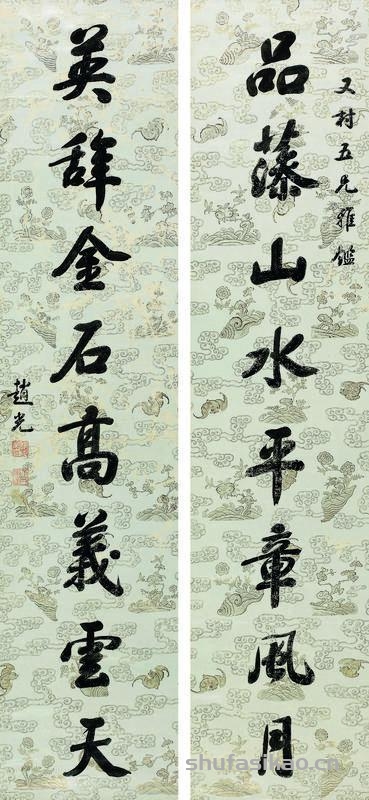 又村五兄雅鑑
品藻山水平章風月
英辞金石高義雲天
趙光
shufasikao.cn